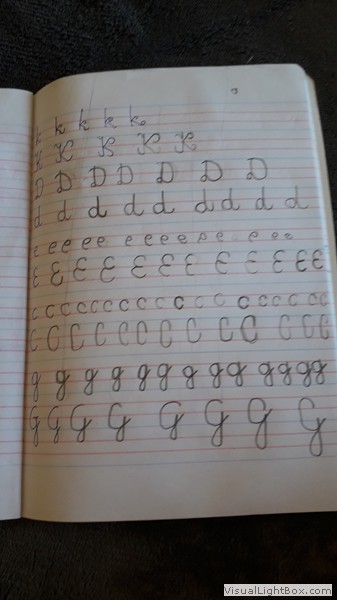 k k k k k
K K K K K
D D D D D D D
d d d d d d d d d
e e e e e e e e e e e e e
E E E E E E E E E E E E
c c c c c c c c c c c c c c c c
C C C C C C C C C C C C
g g g g g g g g g g g g g
G G G G G G G G
VisualLightBox.com